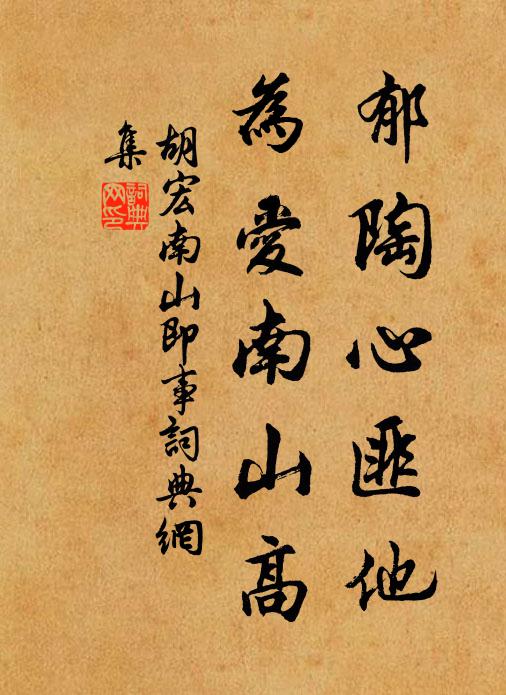 郁陶心匪他
為愛南山高
胡宏南山即事詞典網
集
詞典
网印